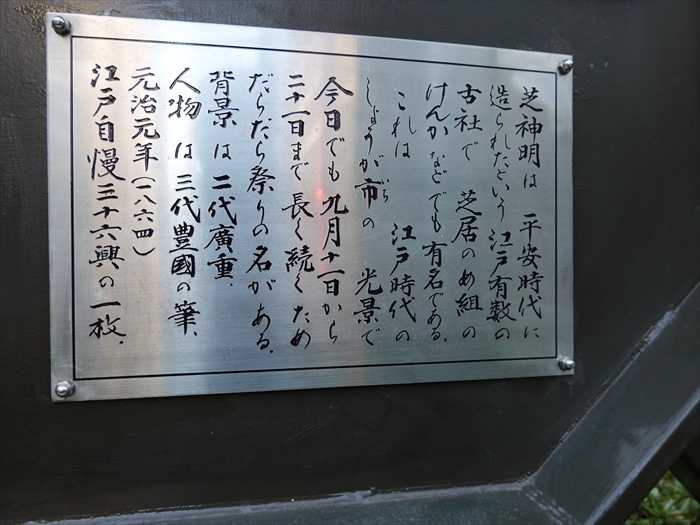 芝神明は 平安時代に
造られたという 江戸有数の
古社で 芝居のめ組の
けんかなどでも有名である.
これは 江戸時代の
しょうが市の 光景で
いち
今日でも 九月十一日から
二十一日まで 長く続くため
だらだら祭りの名がある.
背景は 二代廣重.
人物は 三代豊國の筆.
元治元年(一八六四)
江戸自慢三十六興の一枚.